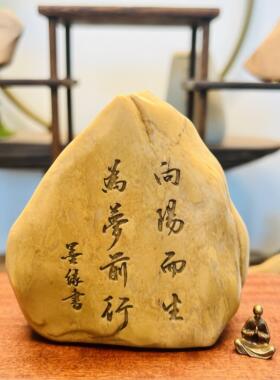 向陽而生
為夢前行
墨缘書